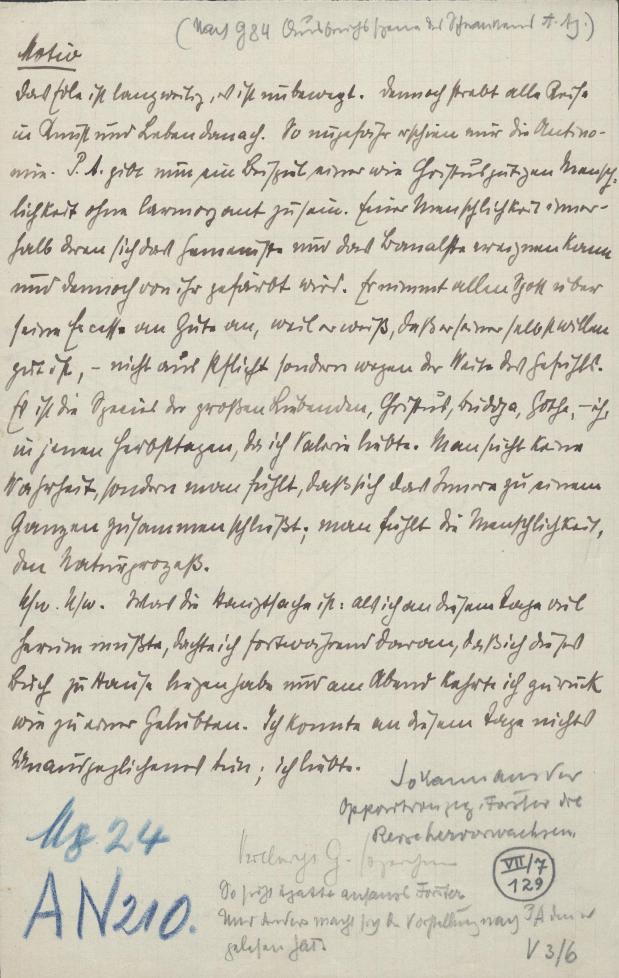 (Nach g 84 Ausbruchsszene des Schwankens A. Ag.)
Motiv
Das Edle ist langweilig, es ist unbewegt. Dennoch strebt alle Reife
in Kunst und Leben danach. So ungefähr erschien mir die Antino-
mie. P. A. gibt nun ein Beispiel einer wie Christus gütigen Mensch-
lichkeit ohne larmoyant zu sein. Einer Menschlichkeit inner-
halb deren sich das Gemeinste und das Banalste ereignen kann
und dennoch von ihr gefärbt wird. Er nimmt allen Spott über
seine Excesse an Güte an, weil er weiß, daß er seiner selbst willen
gut ist, – nicht aus Pflicht sondern wegen der Weite des Gefühls.
Es ist die Species der großen Liebenden, Christus, Buddha, Göthe, – ich,
in jenen Herbsttagen, da ich Valerie liebte. Man sucht keine
Wahrheit, sondern man fühlt, daß sich das Innere zu einem
Ganzen zusammenschließt; man fühlt die Menschlichkeit,
den Naturprozeß.
Usw. Usw. Was die Hauptsache ist: als ich an diesem Tage viel
herum mußte, dachte ich fortwährend daran, daß ich dieses
Buch zu Hause liegen habe und am Abend kehrte ich zurück
wie zu einer Geliebten. Ich konnte an diesem Tage nichts
Unausgeglichenes tun; ich liebte.
Johann aus der
Forster die
G-
VII/7
129
Mg 24
So Agathe anfangs Forster
Und Anders macht sich die Vorstellung nach PA den er
gelesen hat.
AN 210.
V 3/6